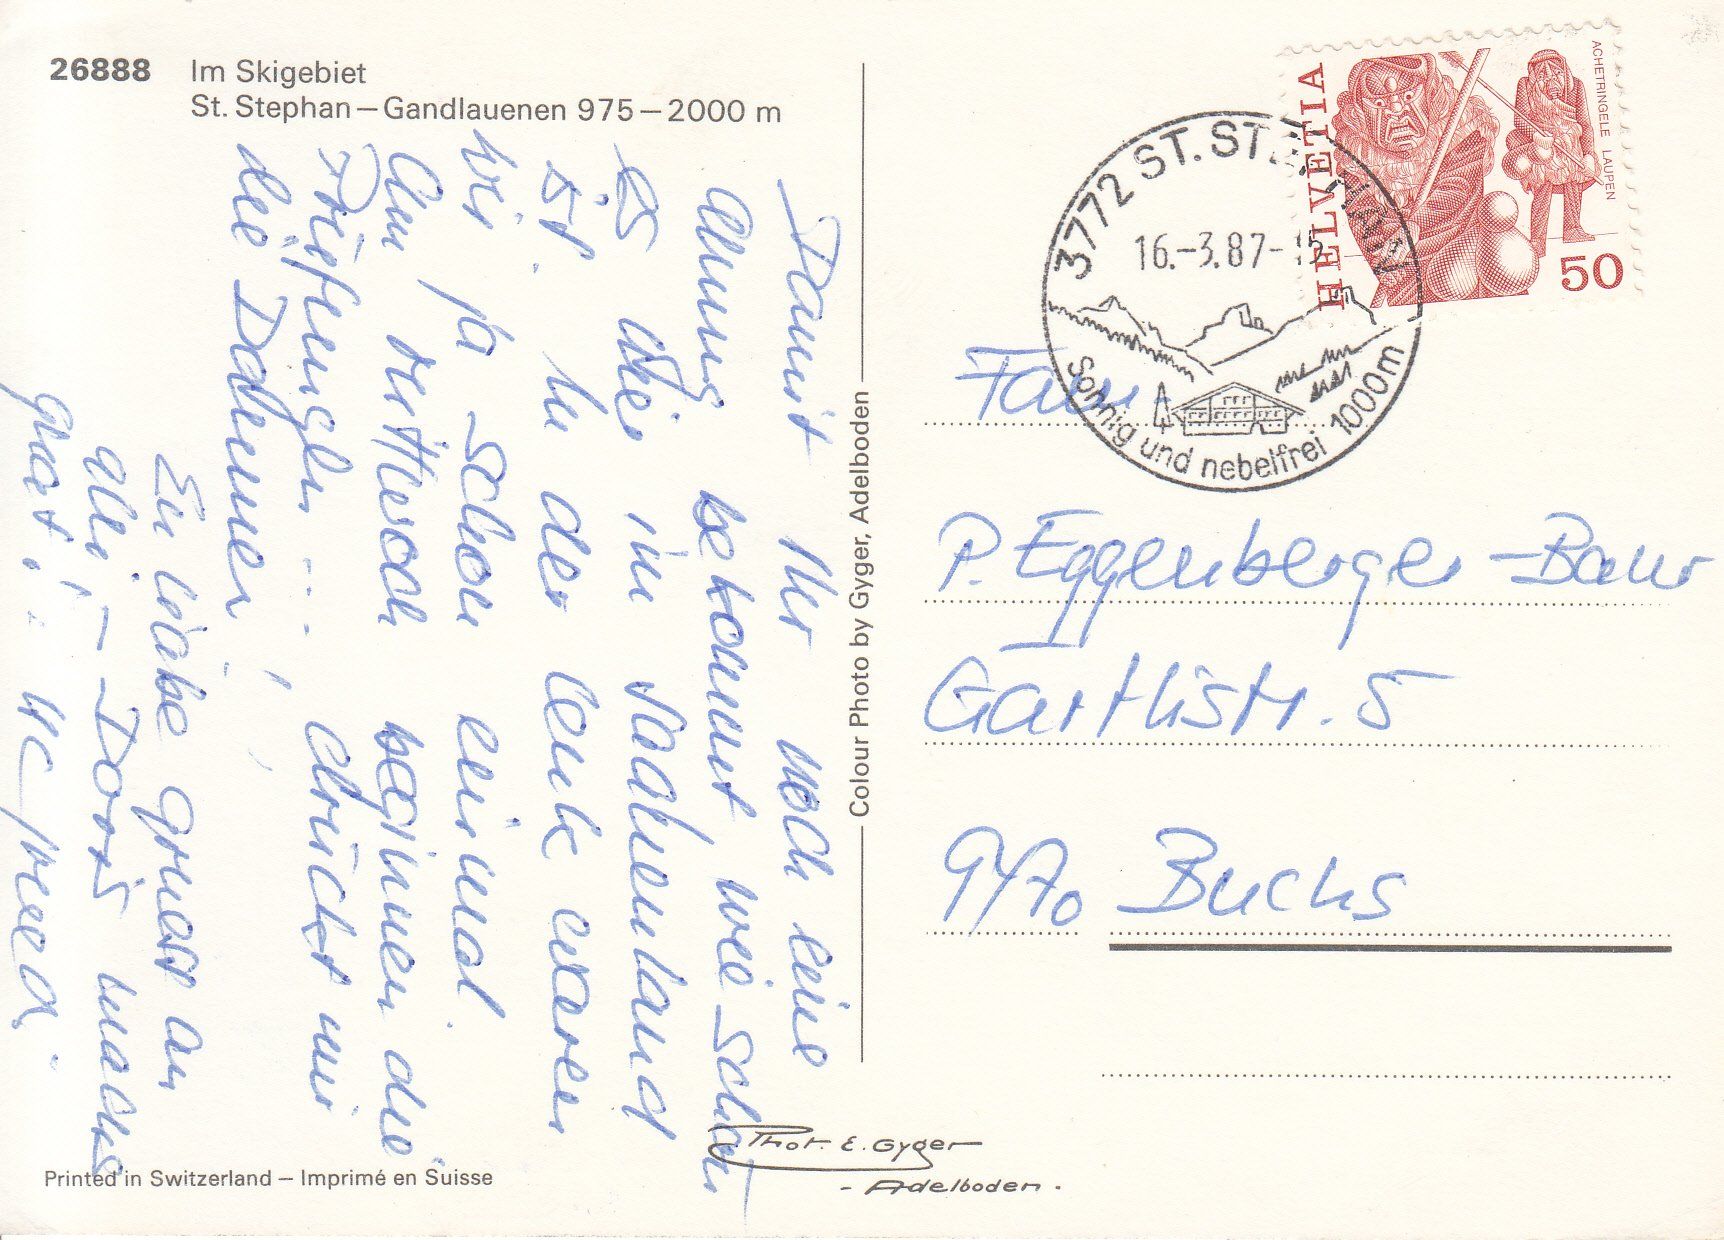 26888 Im Skigebiet
St. Stephan – Gandlauenen 975 – 2000 m
Damit Ihr noch eine
Ahnung bekommt, wie schön
es hier im Saanenland
ist. In der Lenk waren
wir ja schon einmal.
Am Mittwoch beginnen die
Prüefungen ... drückt mir
die Daumen!
En liäbe Gruess an
alli – Doris machts
guet!! W. Speed.
Colour Photo by Gyger, Adelboden
Phot. E. Gyger
- Adelboden.
Printed in Switzerland – Imprimé en Suisse
HELVETIA
ACHETRINGELE LAUPEN
50
3772 ST. STEPHAN
16.-3.87-15
Sonnig und nebelfrei 1000m
Fam.
P. Eggenberger-Baur
Gärtlistr. 5
9470 Buchs